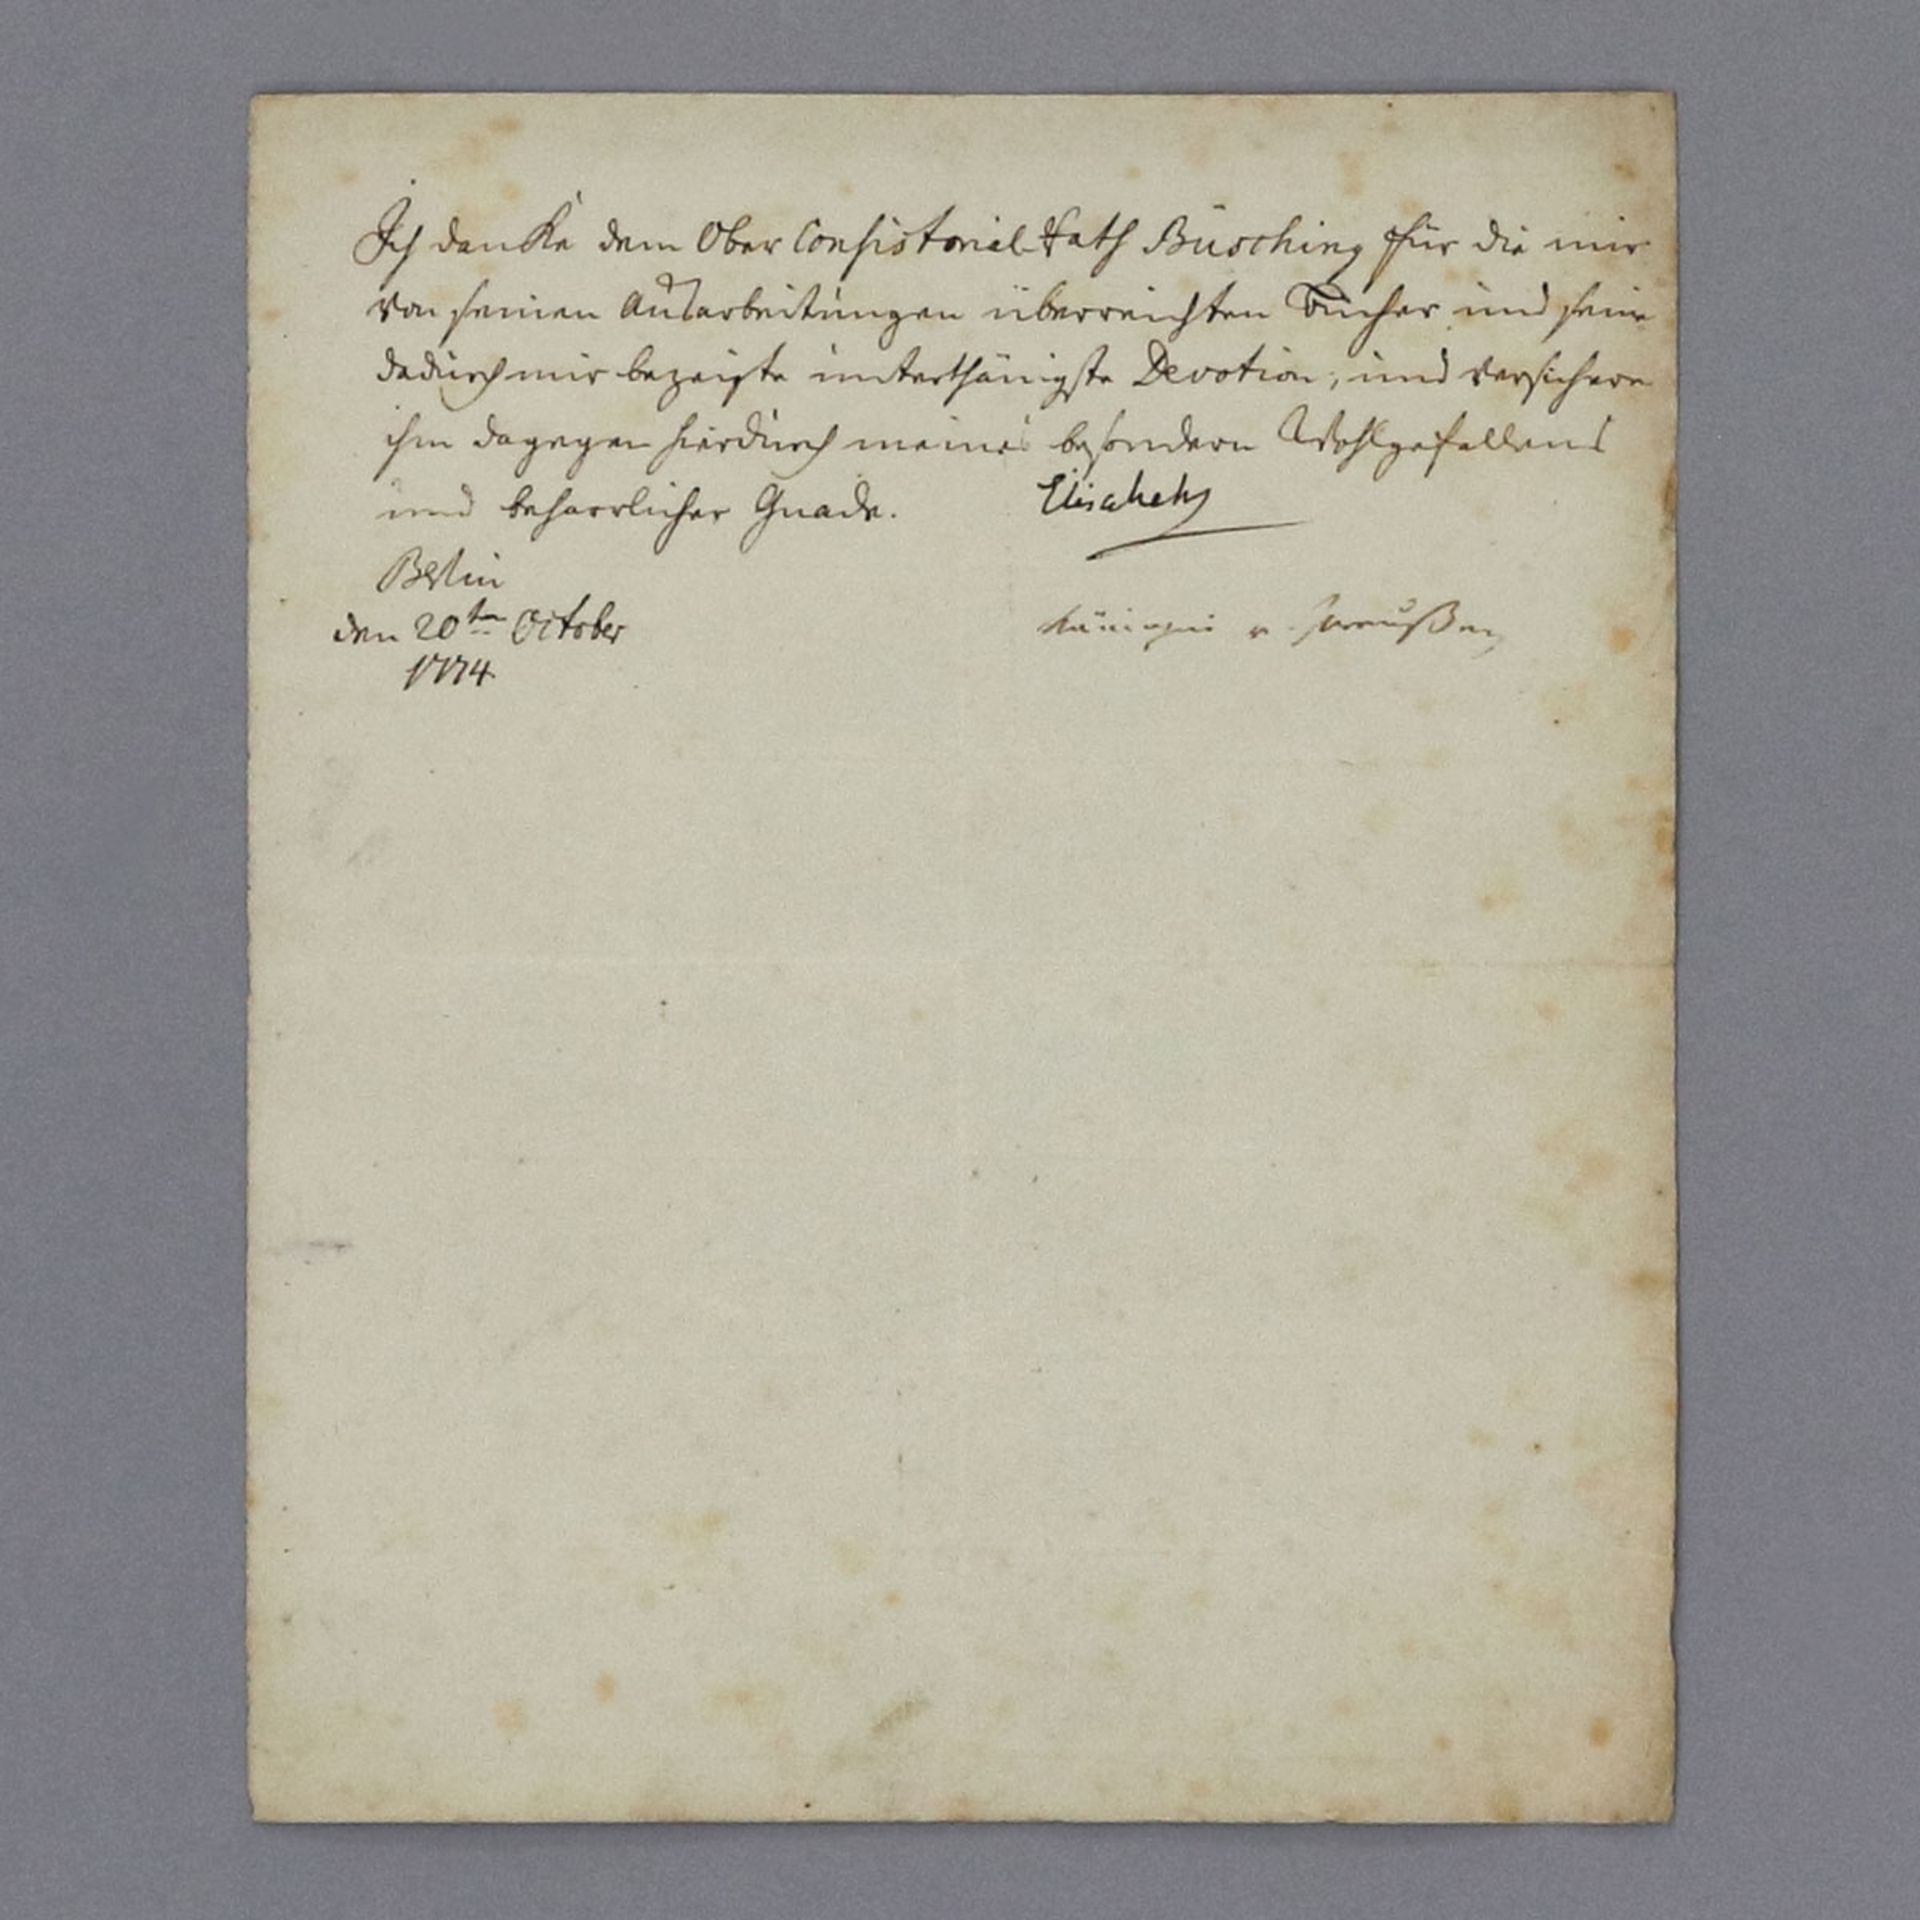 Ich danke dem Ober Consistorial Rath Büsching für die mir
von seinen Ausarbeitungen überreichten Bücher und seine
dadurch mir bezeigte unterthänigste Devotion, und versichere
ihm dagegen hierdurch meines besondern Wohlgefallens
und beharrlicher Gnade.
Elisabeth
Berlin
den 20ten October
1774
Königin v. Preußen